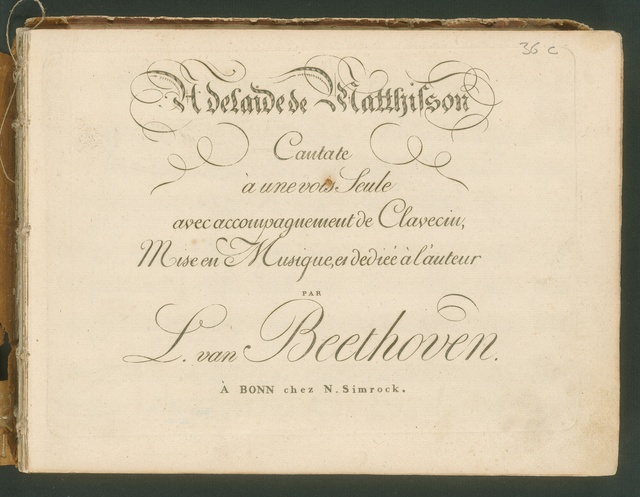 36 c
Adelaide de Matthisson
Cantate
à une vois Seule
avec accompagnement de Clavecin,
Mise en Musique, et dediée à l'auteur
PAR
L. van Beethoven.
À BONN chez N. Simrock.